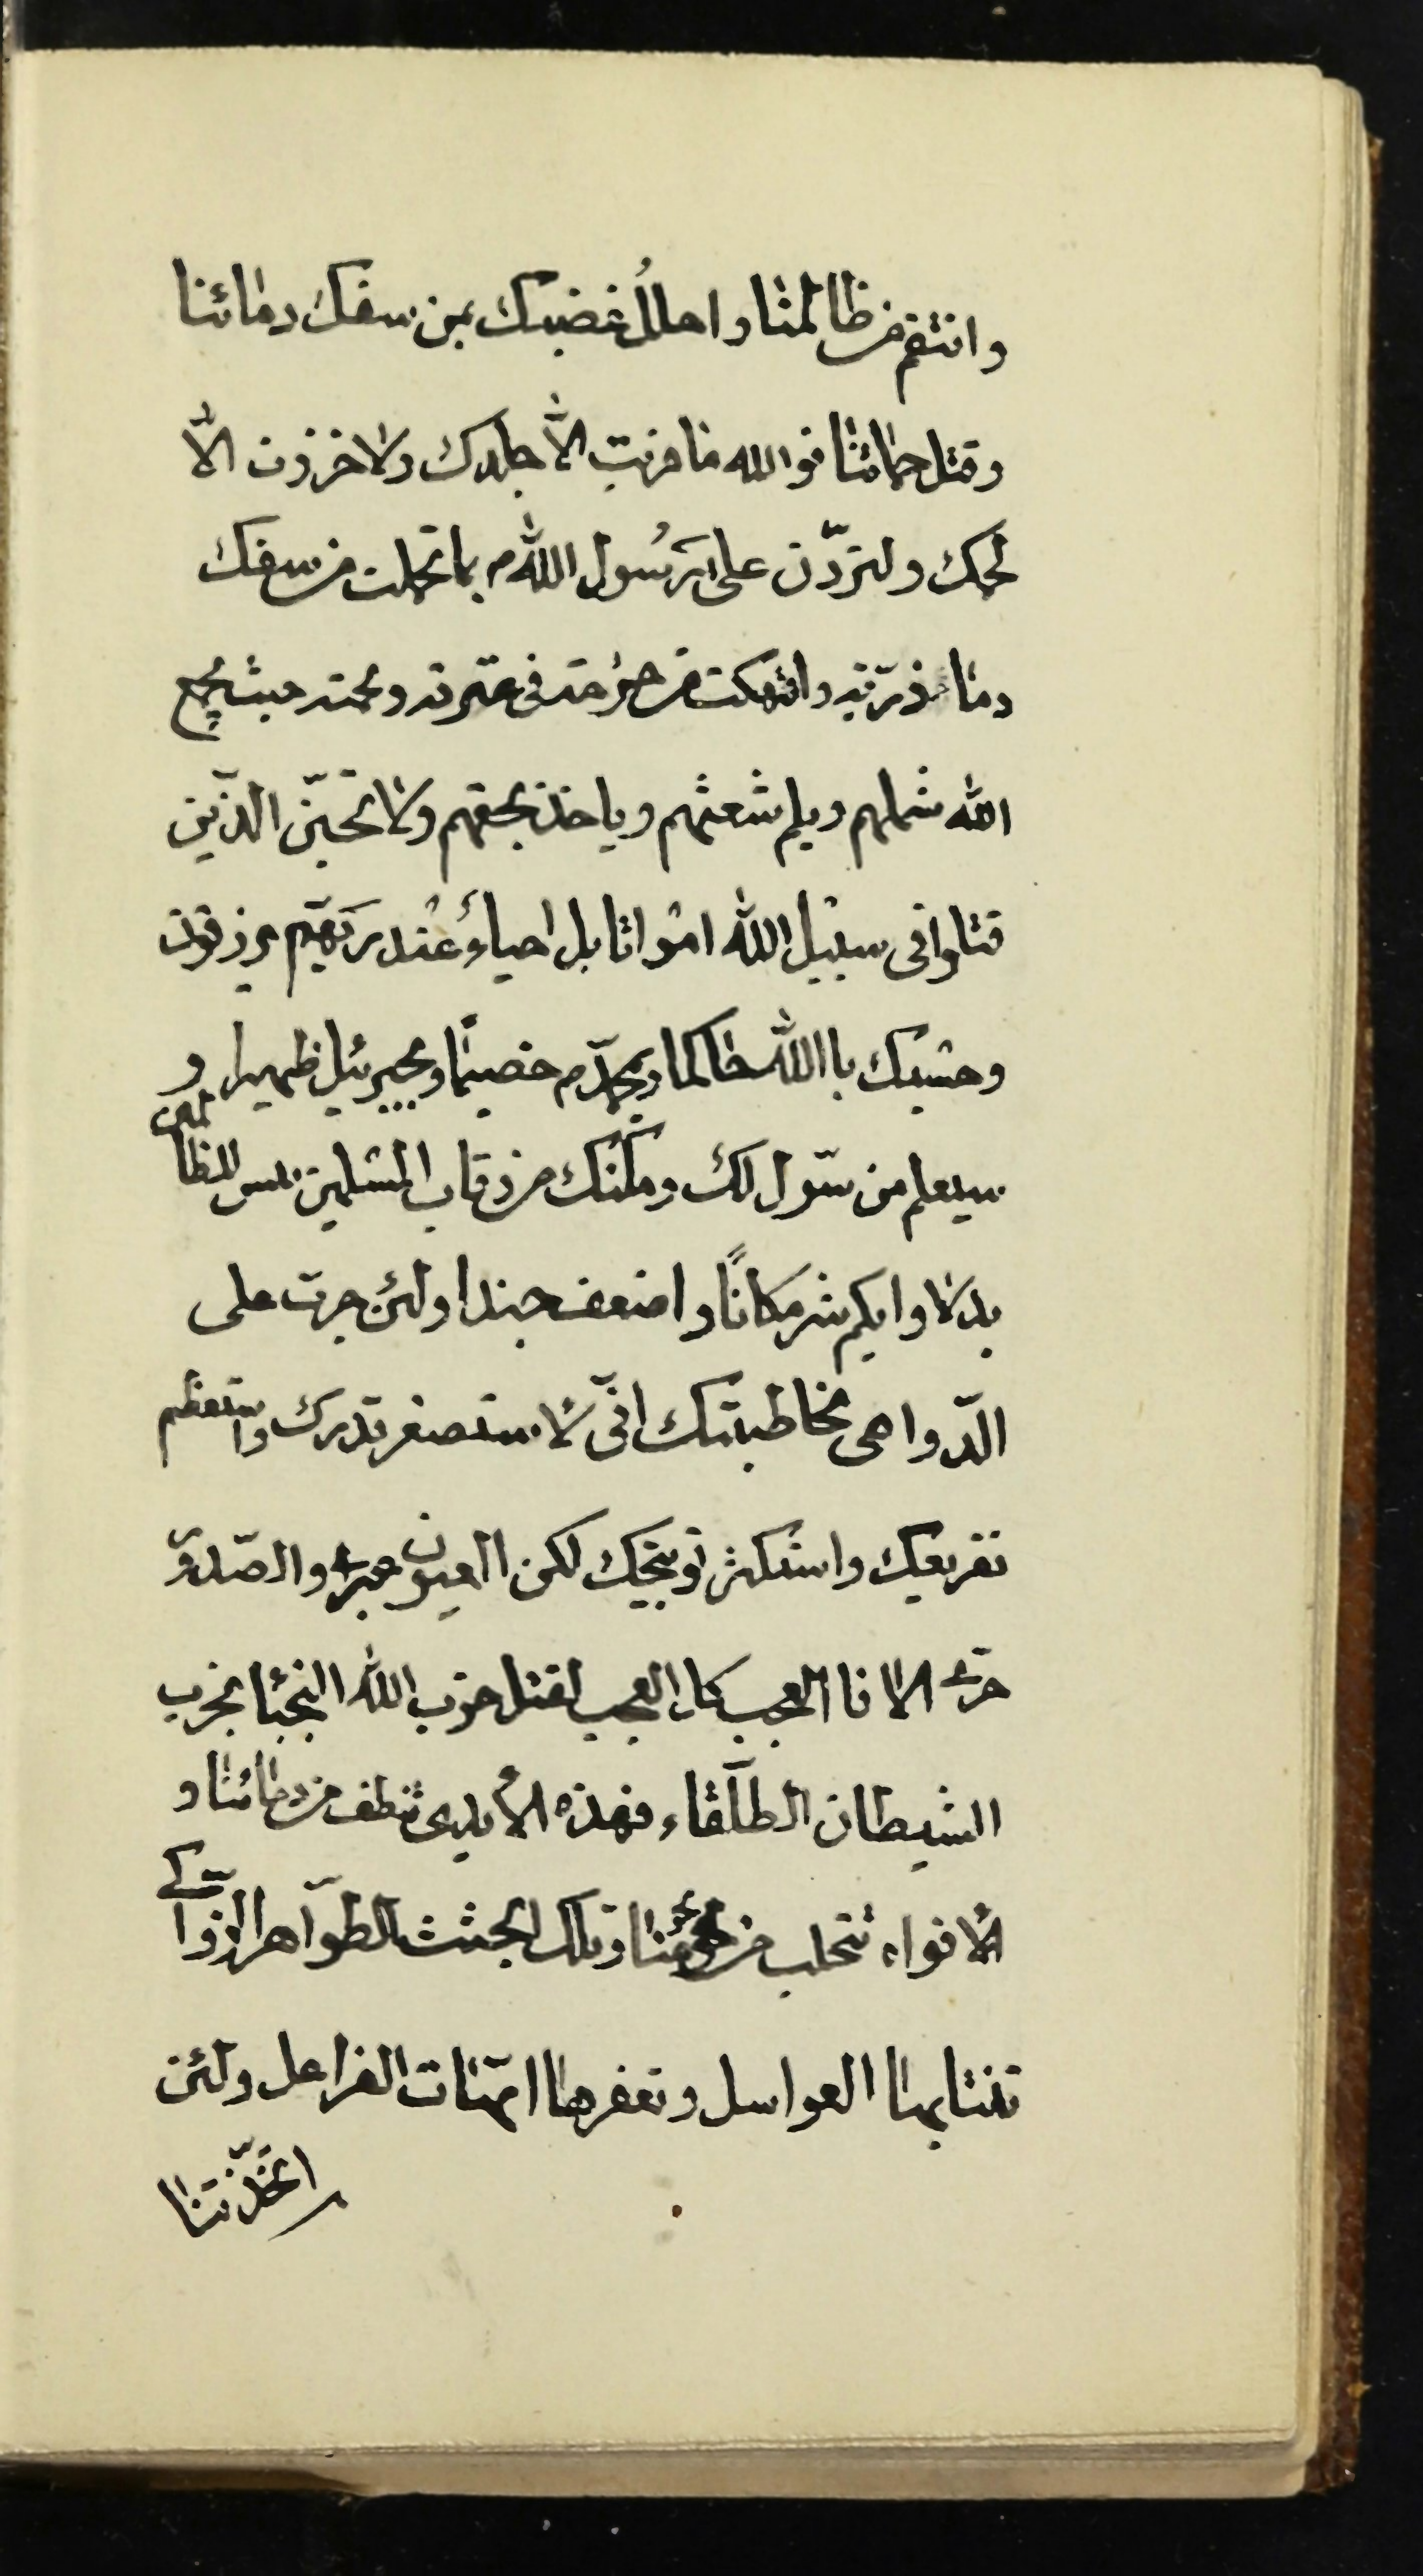 وانتقم من ظالمنا واحلل غضبك بمن سفك دمائنا
وقتل حماتنا فو الله ما فريت الّا جلدك ولا حززت الّا
لحمك ولتردّن على رسُول اللهم بما تحملت من سفك
دماء ذرّيته وانتهكت من حرمته فى عترته ولحمته حيث يجمع
الله شملهم ويلم شعثهم وياخذ بحقهم ولا تحسبنّ الّذين
قتلوا فى سبيل الله امواتا بل احياءُ عند ربّهم يرزقون
وحسبك با الله حاكما وبمحمّدم خصيمًا وبجبرئيل ظهيرا و
سيعلم من سّول لك ومكّنك من رقاب المسلمين بئس للظالمين
بدلا وايكم شر مكانًا واضعف جندا ولئن جرت على
الدّواهى مخاطبتك انّى لاستصغر قدرك واستعظم
تقريعك واستكثر توبيخك لكن العيون عبرى والصّدور
حرّى الا فا العجب كل العجب لقتل حزب الله النجبا بحزب
الشيطان الطلّقاء فهذه الأيدى تنطف من دمائنا و
الأفواه تتحلب من لحومنا وتلك الجثث الطّواهر الزّواكى
تنتابها العواسل وتعفرها امّهات الفراعل ولئن
اتخذّتنا